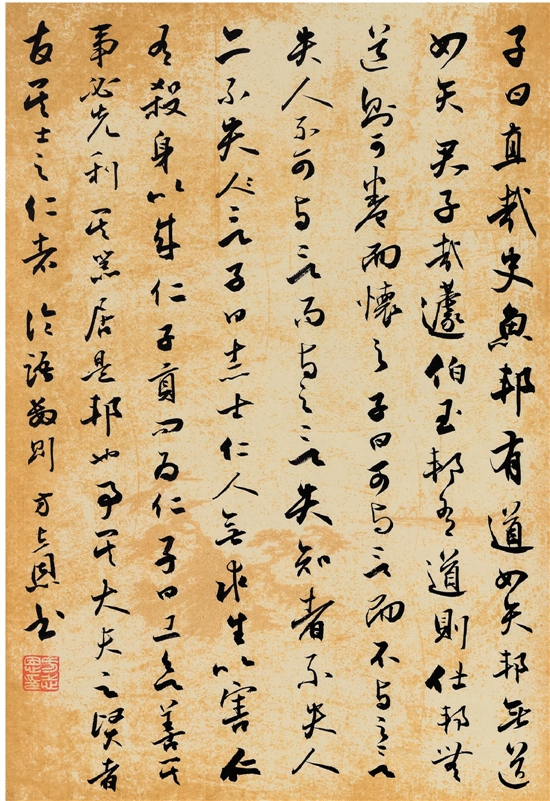 子曰直哉史魚邦有道如矢邦無道
如矢君子哉蘧伯玉邦有道則仕邦無
道則可卷而懷之子曰可与言而不与之言
失人不可与言而与之言失知者不失人
亦不失人言子曰志士仁人無求生以害仁
有殺身以成仁子貢問為仁子曰工欲善其
事必先利其器居是邦也事其大夫之賢者
友其士之仁者 論語數則 方志恩書